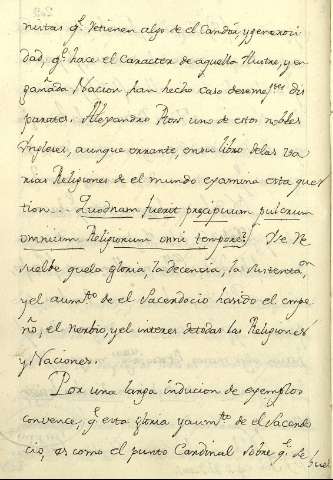 nistas q.e retienen algo de el Candór y generosi
dad, q.e hace el Caracter de aquella Ilustre, y en
gañada Nacion, han hecho caso de semej.tes dis
parates. Alexandro Ros uno de estos nobles
Ingleses, aunque errante, en su libro de las va
rias Religiones de el mundo examina esta ques
tion... Quodnam fuerit præcipuum pulcrum
omnium Religionum omni tempore? Y se re
suelbe que la gloria, la decencia, la sustenta.on
y el aum.to de el Sacerdocio ha sido el empe
ño, el nerbio, y el interes de todas las Religiones
y Naciones.
Por una larga induccion de exemplos
convence, q.e esta gloria y aum.to de el Sacerdo
cio, es como el punto Cardinal sobre q.e se
buel